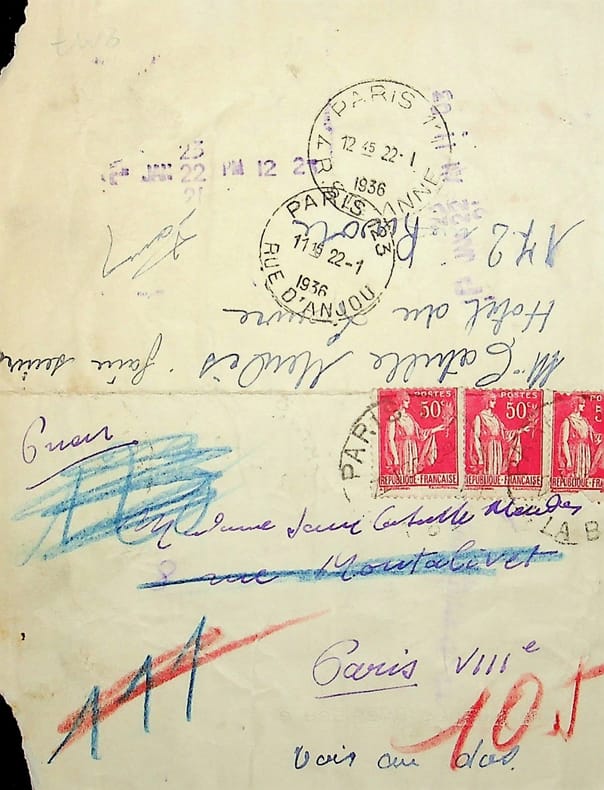 PARIS
12 45 22-1
1936
PARIS
11 15 22-1
1936
RUE D'ANJOU
JAN 22 PM 12
23
172 R Rivoli
Hotel du Louvre
Mme Catulle Mendès faire suivre
POSTES
50c
REPUBLIQUE-FRANÇAISE
POSTES
50c
REPUBLIQUE-FRANÇAISE
REPUBLIQUE-FRANÇAISE
PARIS
LA B
Pneu
Madame Jane Catulle Mendes
8 rue Montalivet
Paris VIIIe
111
105
Vois au dos